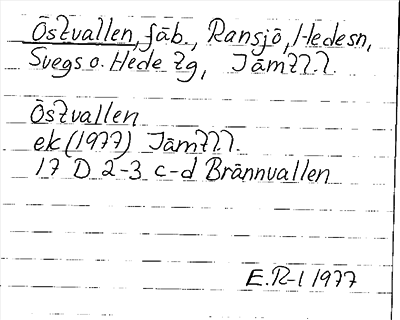 Östvallen, fäb., Ransjö, Hedesn,
Svegs o. Hede tg, Jämtl.l.
Östvallen
ek (1977) Jämtl.
17 D 2-3 c-d Brännvallen
E.R-l 1977